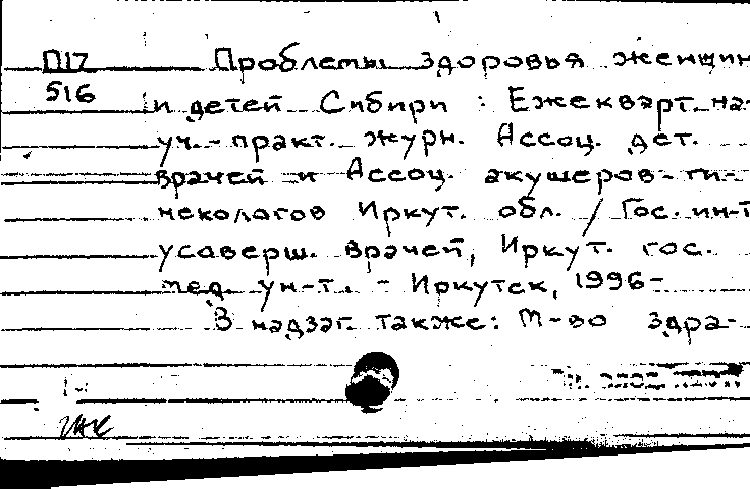 П17 Проблемы здоровья женщин
516 и детей Сибири : Ежекварт. на-
уч.-практ. журн. Ассоц. дет.
врачей и Ассоц. акушеров-ги-
некологов Иркут. обл. / Гос. ин-т
усаверш. врачей, Иркут. гос.
мед. ун-т. - Иркутск, 1996-
В надзаг. также: М-во здра-